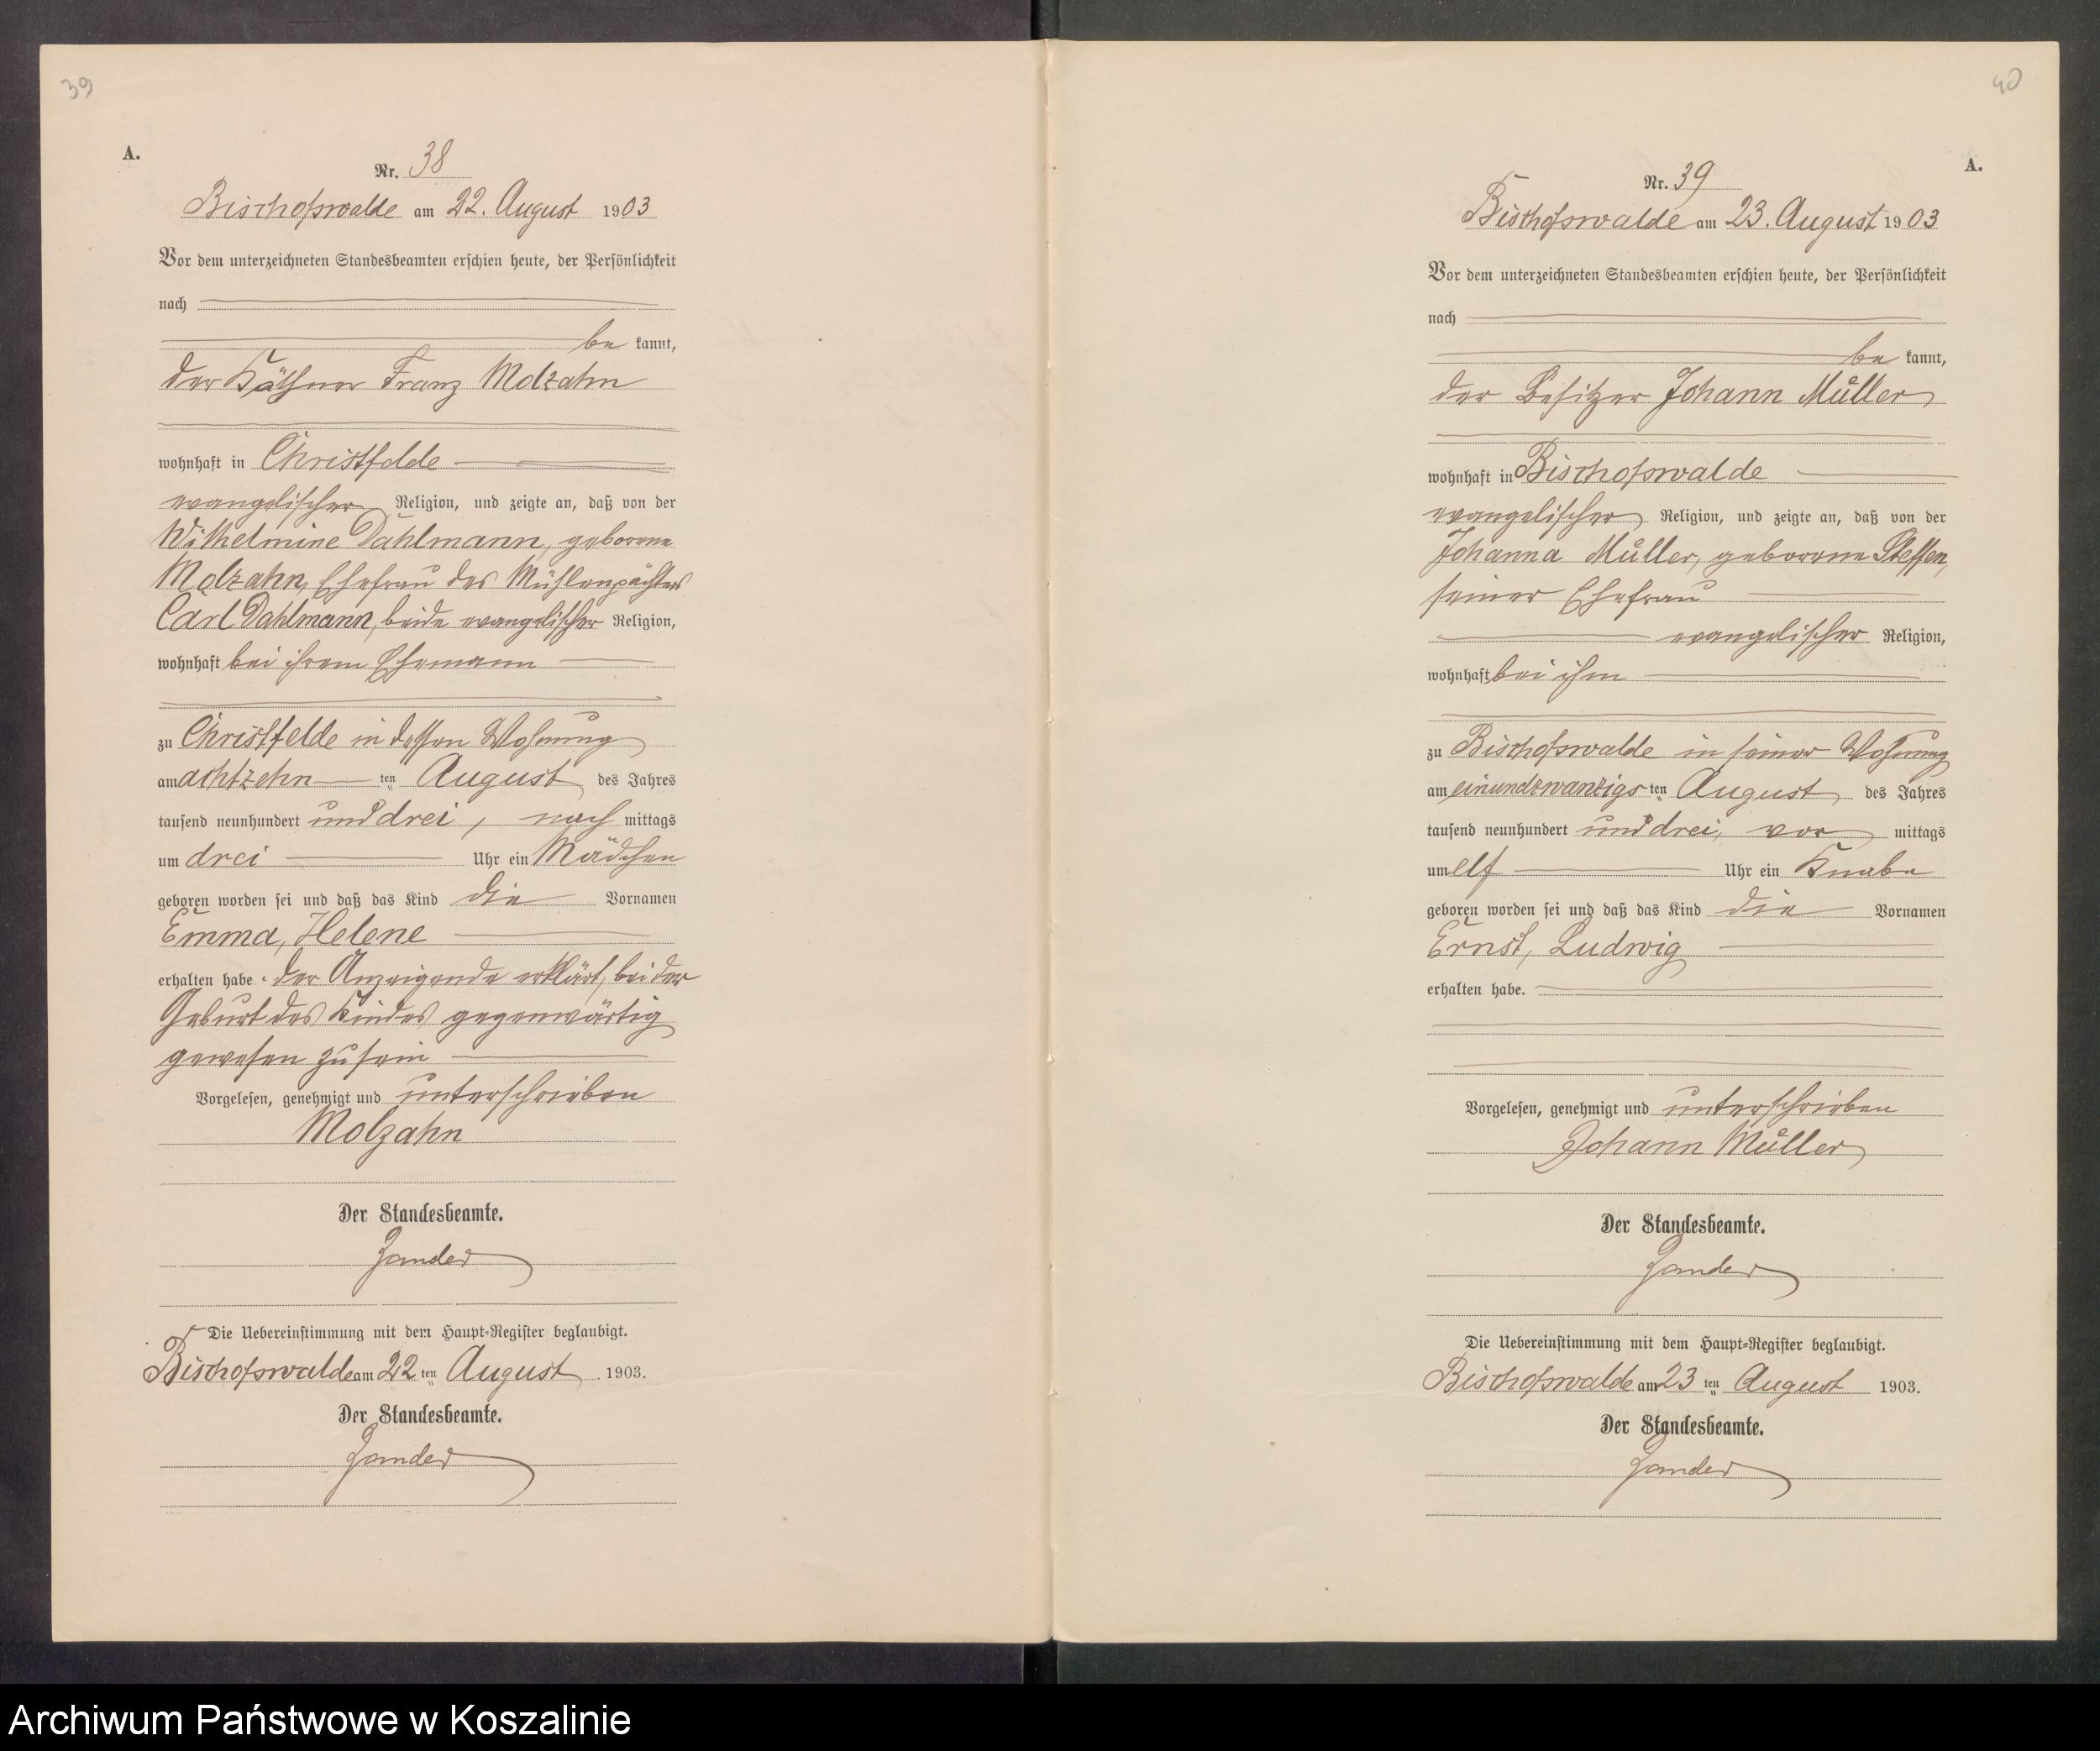 39
A.
Nr. 38
Bischofswalde am 22. August 1903
Vor dem unterzeichneten Standesbeamten erschien heute, der Persönlichkeit
nach
be kannt,
der Käthner Franz Molzahn
wohnhaft in Christfelde
evangelischer Religion, und zeigte an, daß von der
Wilhelmine Dahlmann, geborene
Molzahn, Ehefrau des Mühlenpächters
Carl Dahlmann, beide evangelischer Religion,
wohnhaft bei ihrem Ehemann
zu Christfelde in dessen Wohnung
am achtzehn ten August des Jahres
tausend neunhundert und drei, nach mittags
um drei Uhr ein Mädchen
geboren worden sei und daß das Kind die Vornamen
Emma, Helene
erhalten habe. der Anzeigende erklärt, bei der
Geburt des Kindes gegenwärtig
gewesen zu sein
Vorgelesen, genehmigt und unterschrieben
Molzahn
Der Standesbeamte.
Zander
Die Uebereinstimmung mit dem Haupt-Register beglaubigt.
Bischofswalde am 22 ten August 1903.
Der Standesbeamte.
Zander
40
A.
Nr. 39
Bischofswalde am 23. August 1903
Vor dem unterzeichneten Standesbeamten erschien heute, der Persönlichkeit
nach
be kannt,
der Besitzer Johann Müller
wohnhaft in Bischofswalde
evangelischer Religion, und zeigte an, daß von der
Johanna Müller, geborene Steffen,
seiner Ehefrau
evangelischer Religion,
wohnhaft bei ihm
zu Bischofswalde in seiner Wohnung
am einundzwanzigs ten August des Jahres
tausend neunhundert und drei, vor mittags
um elf Uhr ein Knabe
geboren worden sei und daß das Kind die Vornamen
Ernst, Ludwig
erhalten habe.
Vorgelesen, genehmigt und unterschrieben
Johann Müller
Der Standesbeamte.
Zander
Die Uebereinstimmung mit dem Haupt-Register beglaubigt.
Bischofswalde am 23 ten August 1903.
Der Standesbeamte.
Zander
Archiwum Państwowe w Koszalinie